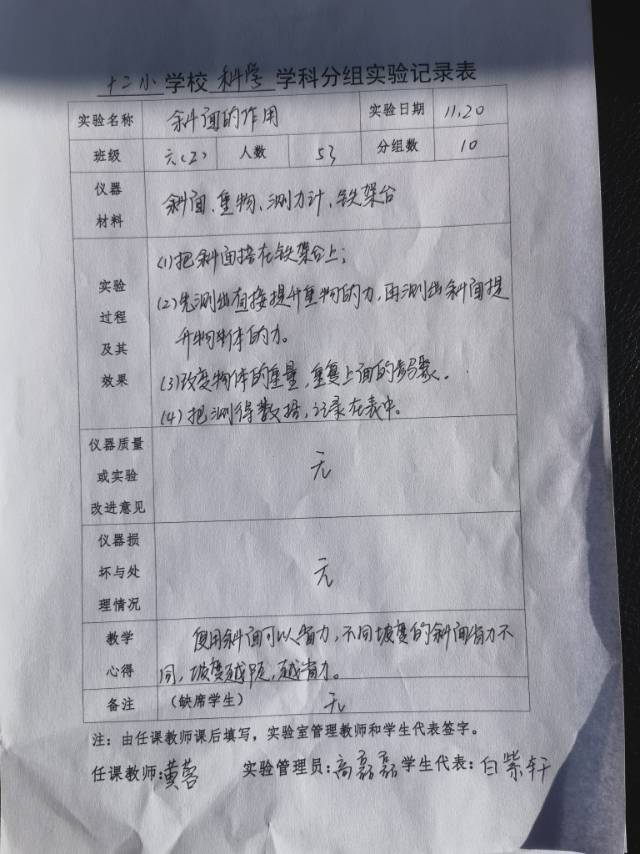 十二小学校 科学 学科分组实验记录表
实验名称 斜面的作用 实验日期 11.20
班级 六(2) 人数 53 分组数 10
仪器材料 斜面、重物、测力计、铁架台
实验过程及其效果
(1)把斜面搭在铁架台上;
(2)先测出直接提升重物的力,再测出斜面提
升物体的力。
(3)改变物体的重量,重复上面的步骤.
(4)把测得数据,记录在表中。
仪器质量或实验改进意见 无
仪器损坏与处理情况 无
教学心得 使用斜面可以省力,不同坡度的斜面省力不
同,坡度越缓,越省力。
备注 (缺席学生) 无
注:由任课教师课后填写,实验室管理教师和学生代表签字。
任课教师:黄蓉 实验管理员:高磊磊 学生代表:白紫轩